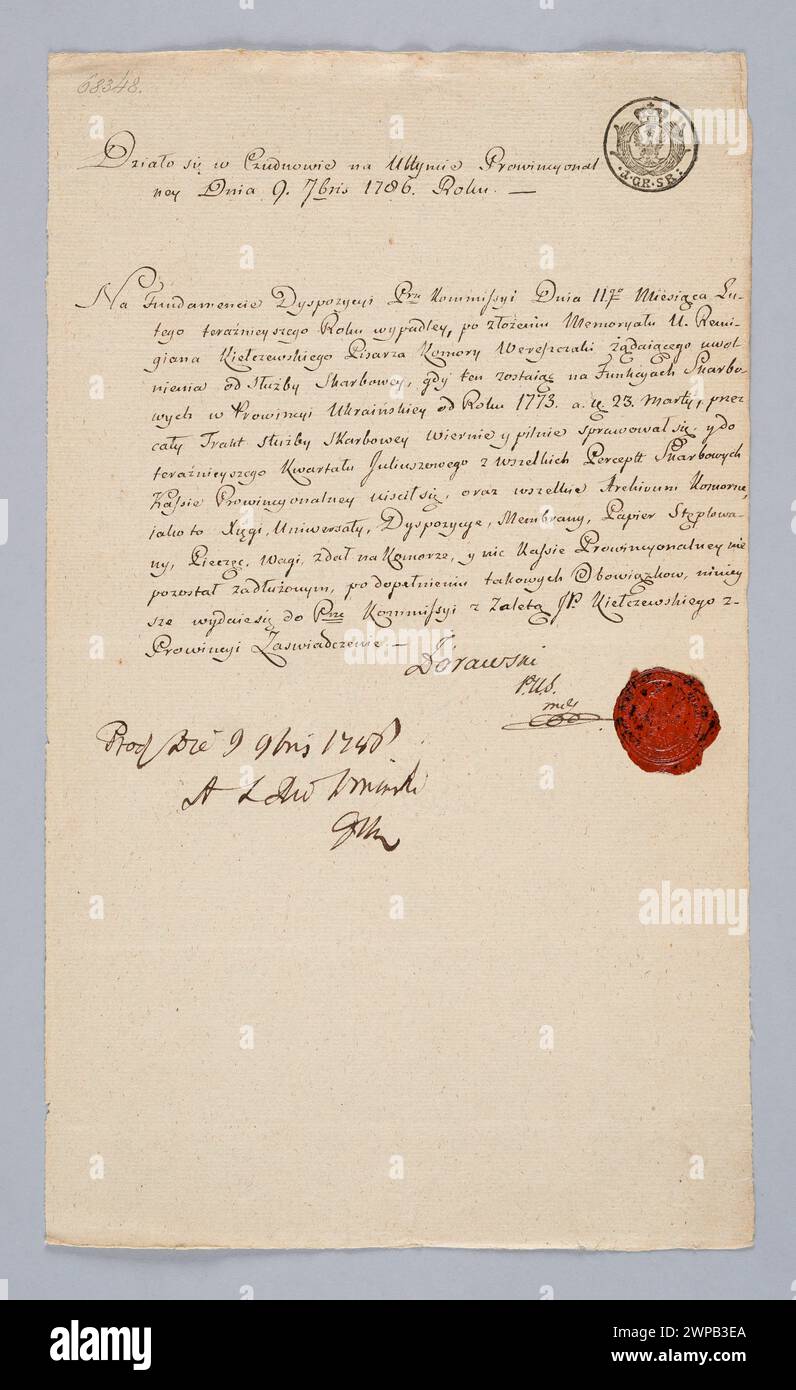 68348.
Działo się w Czudnowie na Ultymie Prowincyonal
ney Dnia 9. 7bris 1786. Roku. —
4. GR. SR:
Na Fundamencie Dyspozycyi Prze Kommissyi Dnia 11go Miesiąca Lu-
tego teraźnieyszego Roku wypadłey, po złożeniu Memoryału U. Remi-
giana Kiełczewskiego Pisarza Komory Wereszczaki żądaiącego uwol-
nienia od służby Skarbowey, gdy ten zostaiąc na Funkcyach Skarbo-
wych w Prowincyi Ukraińskiey od Roku 1773. a. 23. Marty, przez
cały Trakt służby Skarbowey wiernie y pilnie sprawował się, y do
teraźnieyszego Kwartału Juliuszowego z wszelkich Perceptt Skarbowych
Kassie Prowincyonalney uiścił się, oraz wszelkie Archivum Komorne,
jako to Xięgi, Uniwersały, Dyspozycye, Membrany, Papier Stęplowa-
ny, Pieczęć, Wagi, zdał na Komorze, y nic Kassie Prowincyonalney nie
pozostał zadłużonym, po dopełnieniu takowych Obowiązkow, niniey
sze wydaie się do Prze Kommissyi z Zaletą JP. Kiełczewskiego z-
Prowincyi Zaswiadczenie. —
9 9bris
alamy
Image ID: 2WPB3EA
www.alamy.com